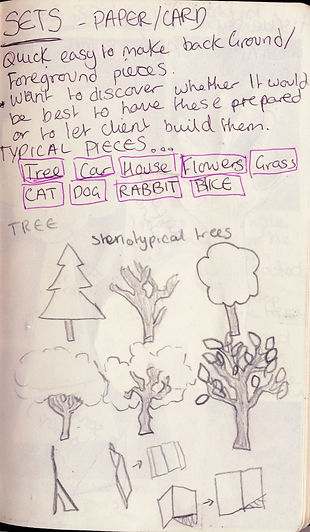 SETS - PAPER/CARD
Quick easy to make back Ground/
Foreground pieces.
* Want to discover whether it would
be best to have these prepared
or to let client build them.
TYPICAL PIECES...
Tree Car House Flowers Grass
CAT DOG RABBIT BICE
TREE
stenotypical trees